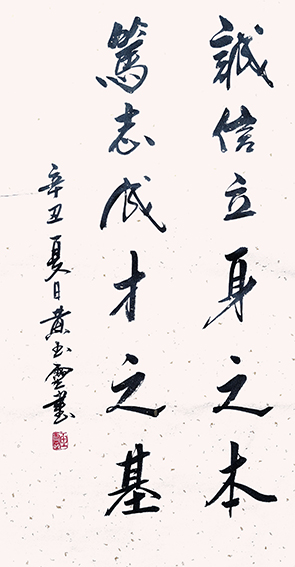 誠信立身之本
篤志成才之基
辛丑夏日黃玉雲書